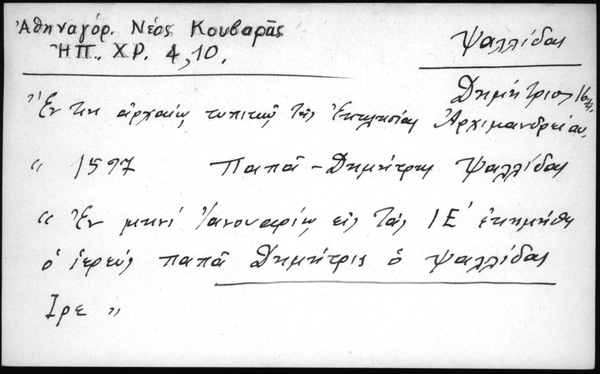 Ἀθηναγόρ. Νέος Κουβαρᾶς
ἨΠ. ΧΡ. 4, 10.
Ψαλλίδας
Δημήτριος
Ἐν τῷ ἀρχαίῳ τυπικῷ τῆς Ἐκκλησίας Ἀρχιμανδρείου,
" 1597 Παπᾶ - Δημήτρης Ψαλλίδας
" Ἐν μηνί Ἰανουαρίῳ εἰς τάς ΙΕ' ἐκοιμήθη
ὁ ἱερεύς παπᾶ Δημήτρις ὁ Ψαλλίδας